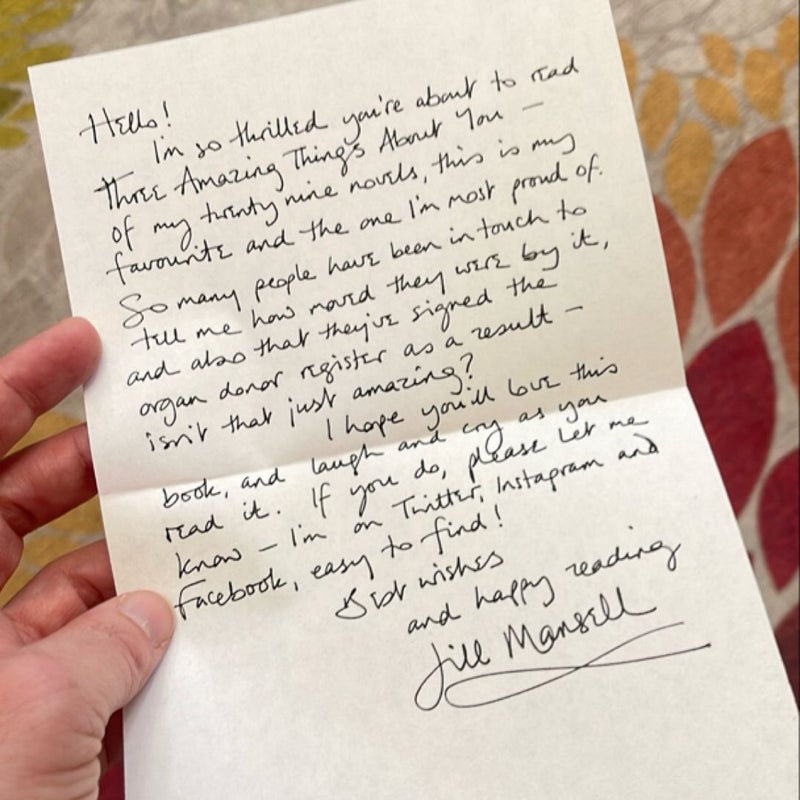 Hello!
I'm so thrilled you're about to read
Three Amazing Things About You –
of my twenty nine novels, this is my
favourite and the one I'm most proud of.
So many people have been in touch to
tell me how moved they were by it,
and also that they've signed the
organ donor register as a result –
isn't that just amazing?
I hope you'll love this
book, and laugh and cry as you
read it. If you do, please let me
know – I'm on Twitter, Instagram and
Facebook, easy to find!
Best wishes
and happy reading
Jill Mansell